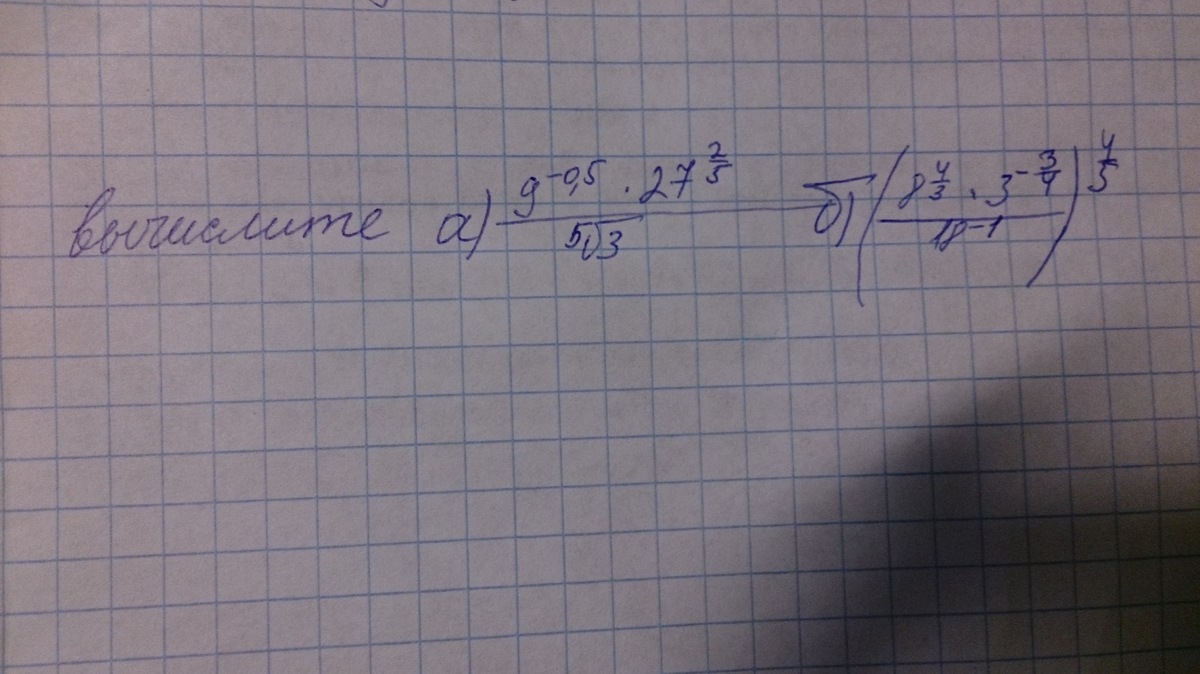 вычислите а) \frac{9^{-0,5} \cdot 27^{\frac{2}{5}}}{\sqrt[5]{3}} б) \left(\frac{8^{\frac{4}{3}} \cdot 3^{-\frac{3}{4}}}{18^{-1}}\right)^{\frac{4}{5}}